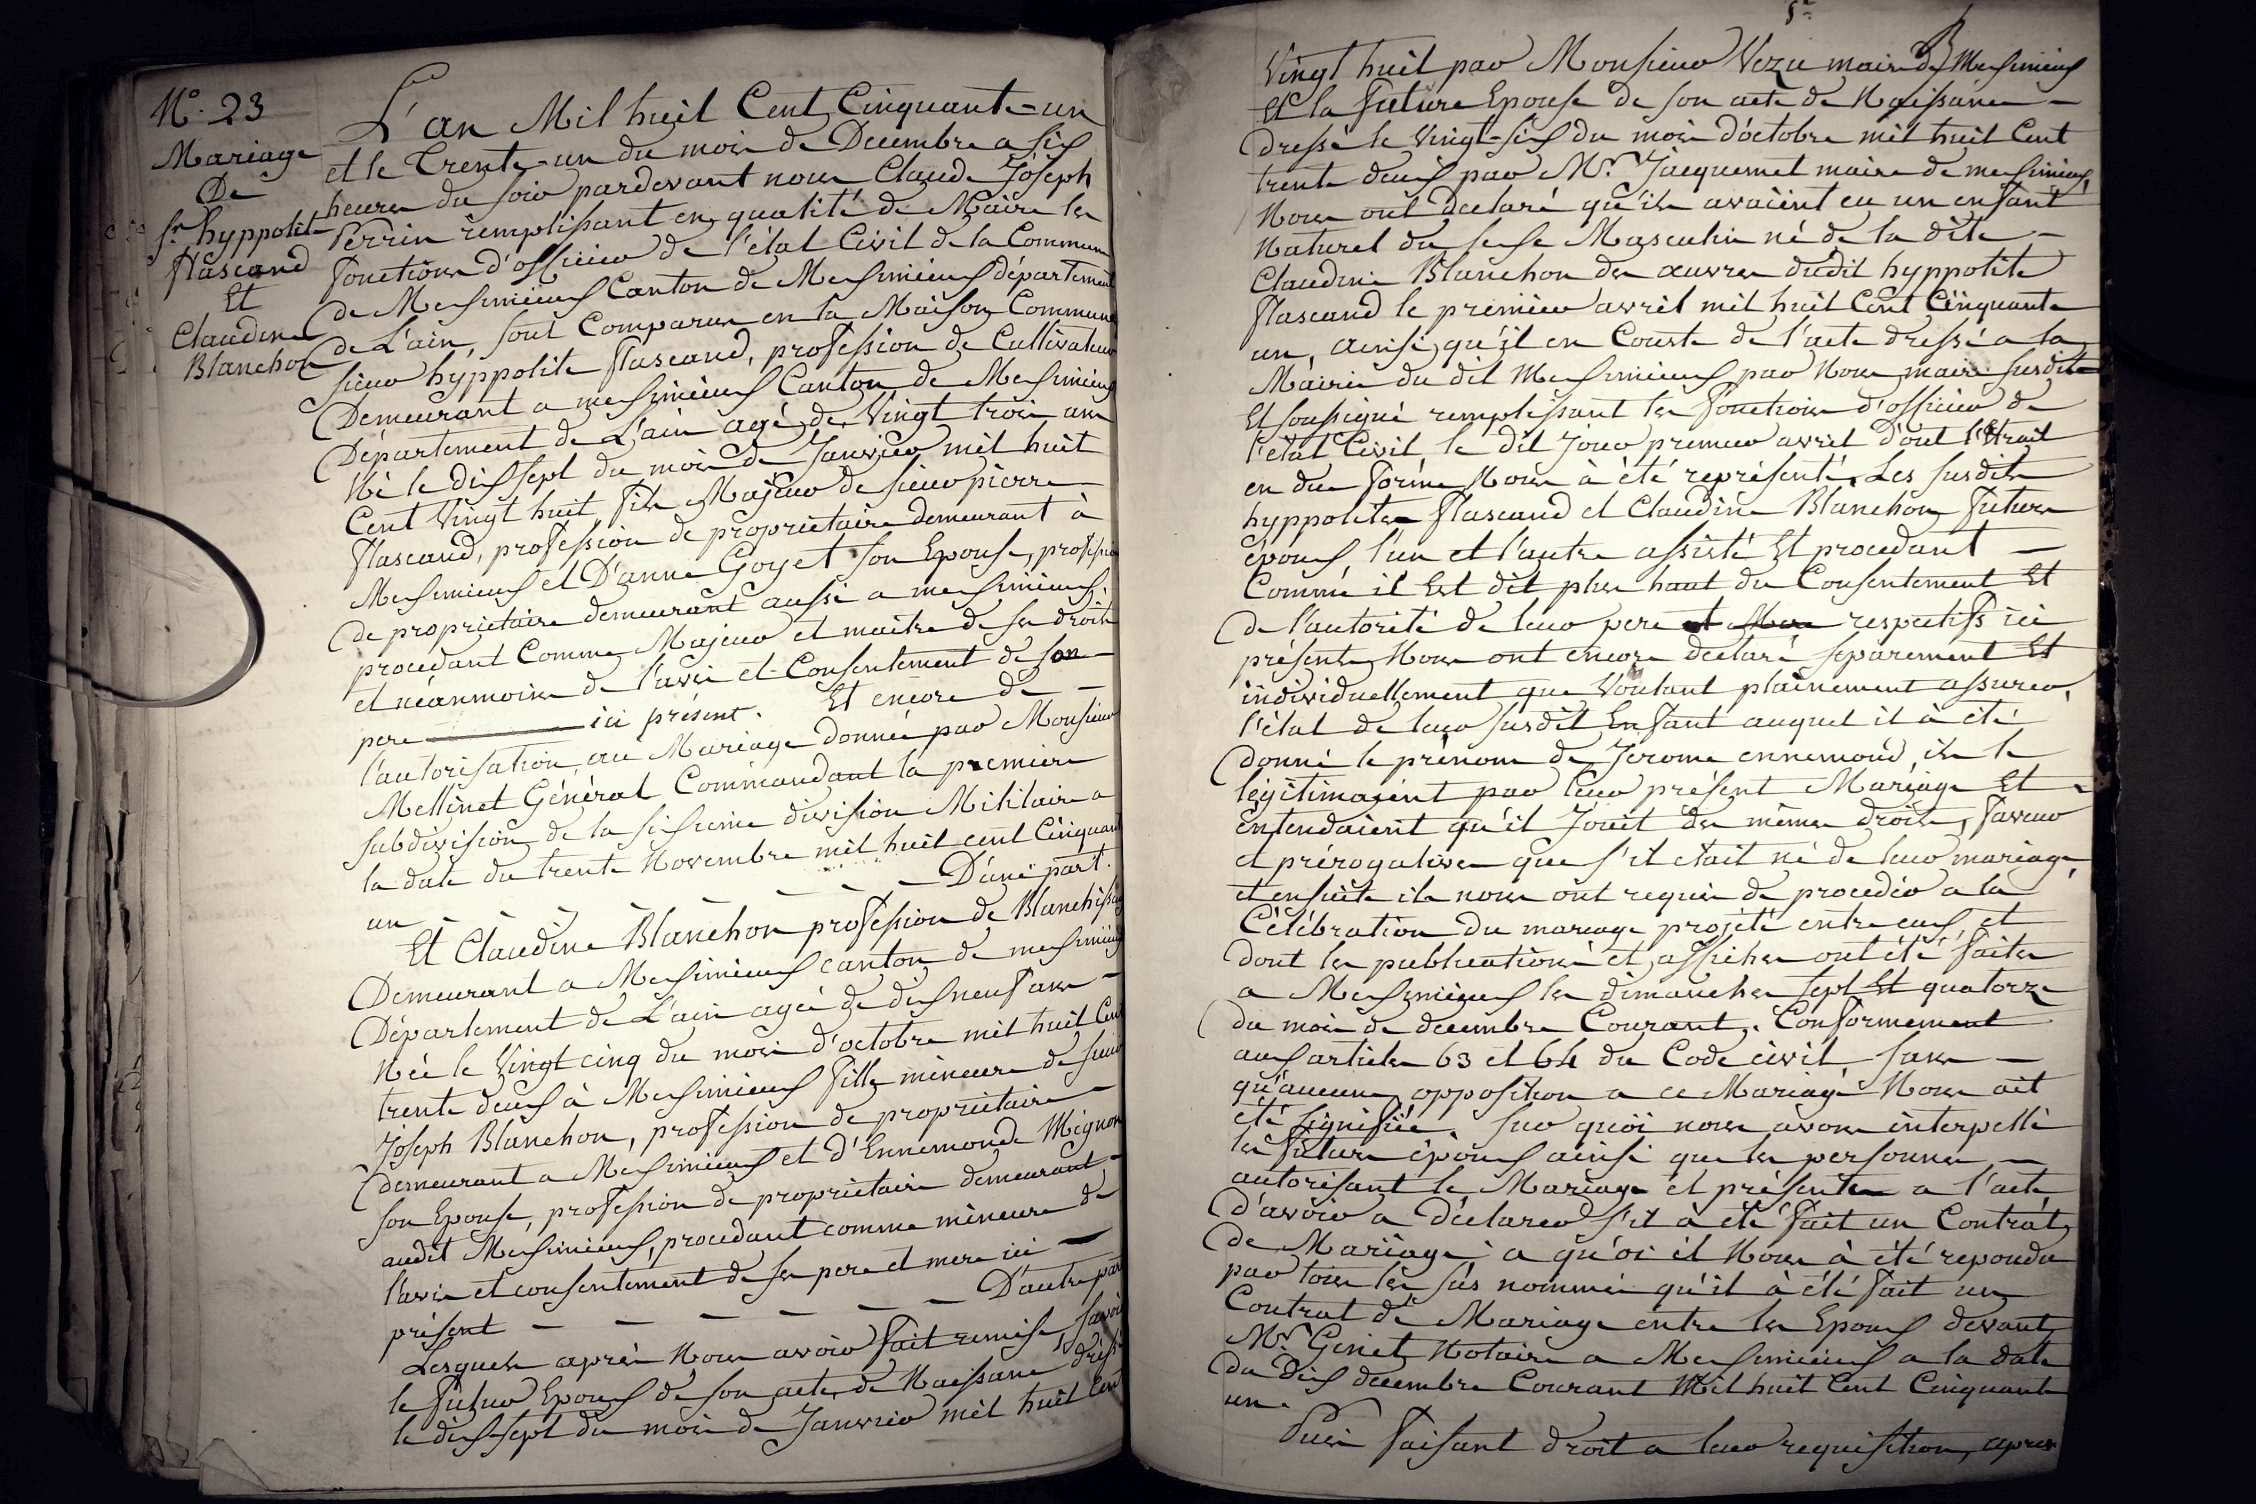 N°. 23
Mariage
De
Sr. hyppolite
Flascand
Et
Claudine
Blanchon
L'an Mil huit Cent Cinquante-un
et le Trente-un du mois de Decembre a six
heures du soir pardevant nous Claude Joseph
Perrin remplissant en qualité de Maire les
fonctions d'officier de l'état Civil de la Commune
de Messimieux Canton de Messimieux département
de L'ain, sont Comparus en la Maison Commune
sieur hyppolite Flascand, profession de Cultivateur
Demeurant a messimieux Canton de Messimieux
Département de L'ain agé de Vingt trois ans
Né le dix sept du mois de Janvier mil huit
Cent Vingt huit fils Majeur de sieur pierre
Flascand, profession de proprietaire demeurant à
Messimieux et D'anne Goyet son Epouse, profession
de proprietaire demeurant aussi a messimieux,
procedant Comme Majeur et maitre de ses droits
et néanmoins de l'avis et Consentement de son
pere ici présent. Et encore de
l'autorisation au Mariage donnée par Monsieur
Mellinet Général Commandant la premiere
subdivision de la sixieme division Militaire a
la date du trente Novembre mil huit cent Cinquante
un - - - - - D'une part.
Et Claudine Blanchon profession de Blanchisseuse
Demeurant a Messimieux canton de messimieux
Département de L'ain agée de dix neuf ans
Née le Vingt cinq du mois d'octobre mil huit Cent
trente deux à Messimieux fille mineure de sieur
Joseph Blanchon, profession de proprietaire
demeurant a Messimieux et d'Ennemonde Mignon
son Epouse, profession de proprietaire demeurant
audit Messimieux, procedant comme mineure de
l'avis et consentement de ses pere et mere ici
présent - - - - - D'autre part
Lesquels après Nous avoir fait remise, savoir
le futur Epoux de son acte de Naissance dressé
le dix-sept du mois de Janvier mil huit Cent
Vingt huit par Monsieur Vezu maire de Messimieux
Et la future Epouse de son acte de Naissance
dressé le Vingt-six du mois d'octobre mil huit Cent
trente deux par Mr. Jacquemet maire de messimieux,
Nous ont declaré qu'ils avaient eu un enfant
Naturel du sexe Masculin né de la dite
Claudine Blanchon des œuvres dudit hyppolite
Flascand le premier avril mil huit Cent Cinquante
un, ainsi qu'il en Conste de l'acte dressé a la
Mairie du dit Messimieux par Nous maire susdit
Et soussigné remplissant les fonctions d'officier de
l'état Civil, le dit Jour premier avril d'out l'Etrait
en due forme Nous à été représenté. Les susdits
hyppolites Flascand et Claudine Blanchon futurs
époux, l'un et l'autre assisté Et procedant
Comme il Est dit plus haut du Consentement Et
de l'autorité de leur pere et Mere respectifs ici
présents Nous ont encore declaré separement Et
individuellement que Voulant plainement assurer,
l'état de leur susdit Enfant auquel il à été
donné le prénom de Jerome ennemond, ils le
légitimaient par leur présent Mariage Et
entendaient qu'il Jouit des mêmes droits, faveur
et prérogatives que s'il etait né de leur mariage,
et ensuite ils nous ont requis de proceder a la
Célébration du mariage projeté entre eux, et
dont les publications et affiches ont été faites
a Messimieux les dimanches sept Et quatorze
du mois de decembre Courant, Conformement
aux articles 63 et 64 du Code civil sans
qu'aucune opposition a ce Mariage Nous ait
été signifiée. Sur quoi nous avons interpellé
les futurs époux ainsi que les personnes
autorisant le Mariage et présentes a l'acte
D'avoir a Déclarer s'il à été fait un Contrat
de Mariage; a qu'oi il Nous à été repondu
par tous les sus nommés qu'il à été fait un
Contrat de Mariage entre les Epoux devant
Mr. Genet Notaire a Messimieux a la date
du Dix decembre Courant Mil huit Cent Cinquante
un.
Puis Faisant droit a leur requisition, apres